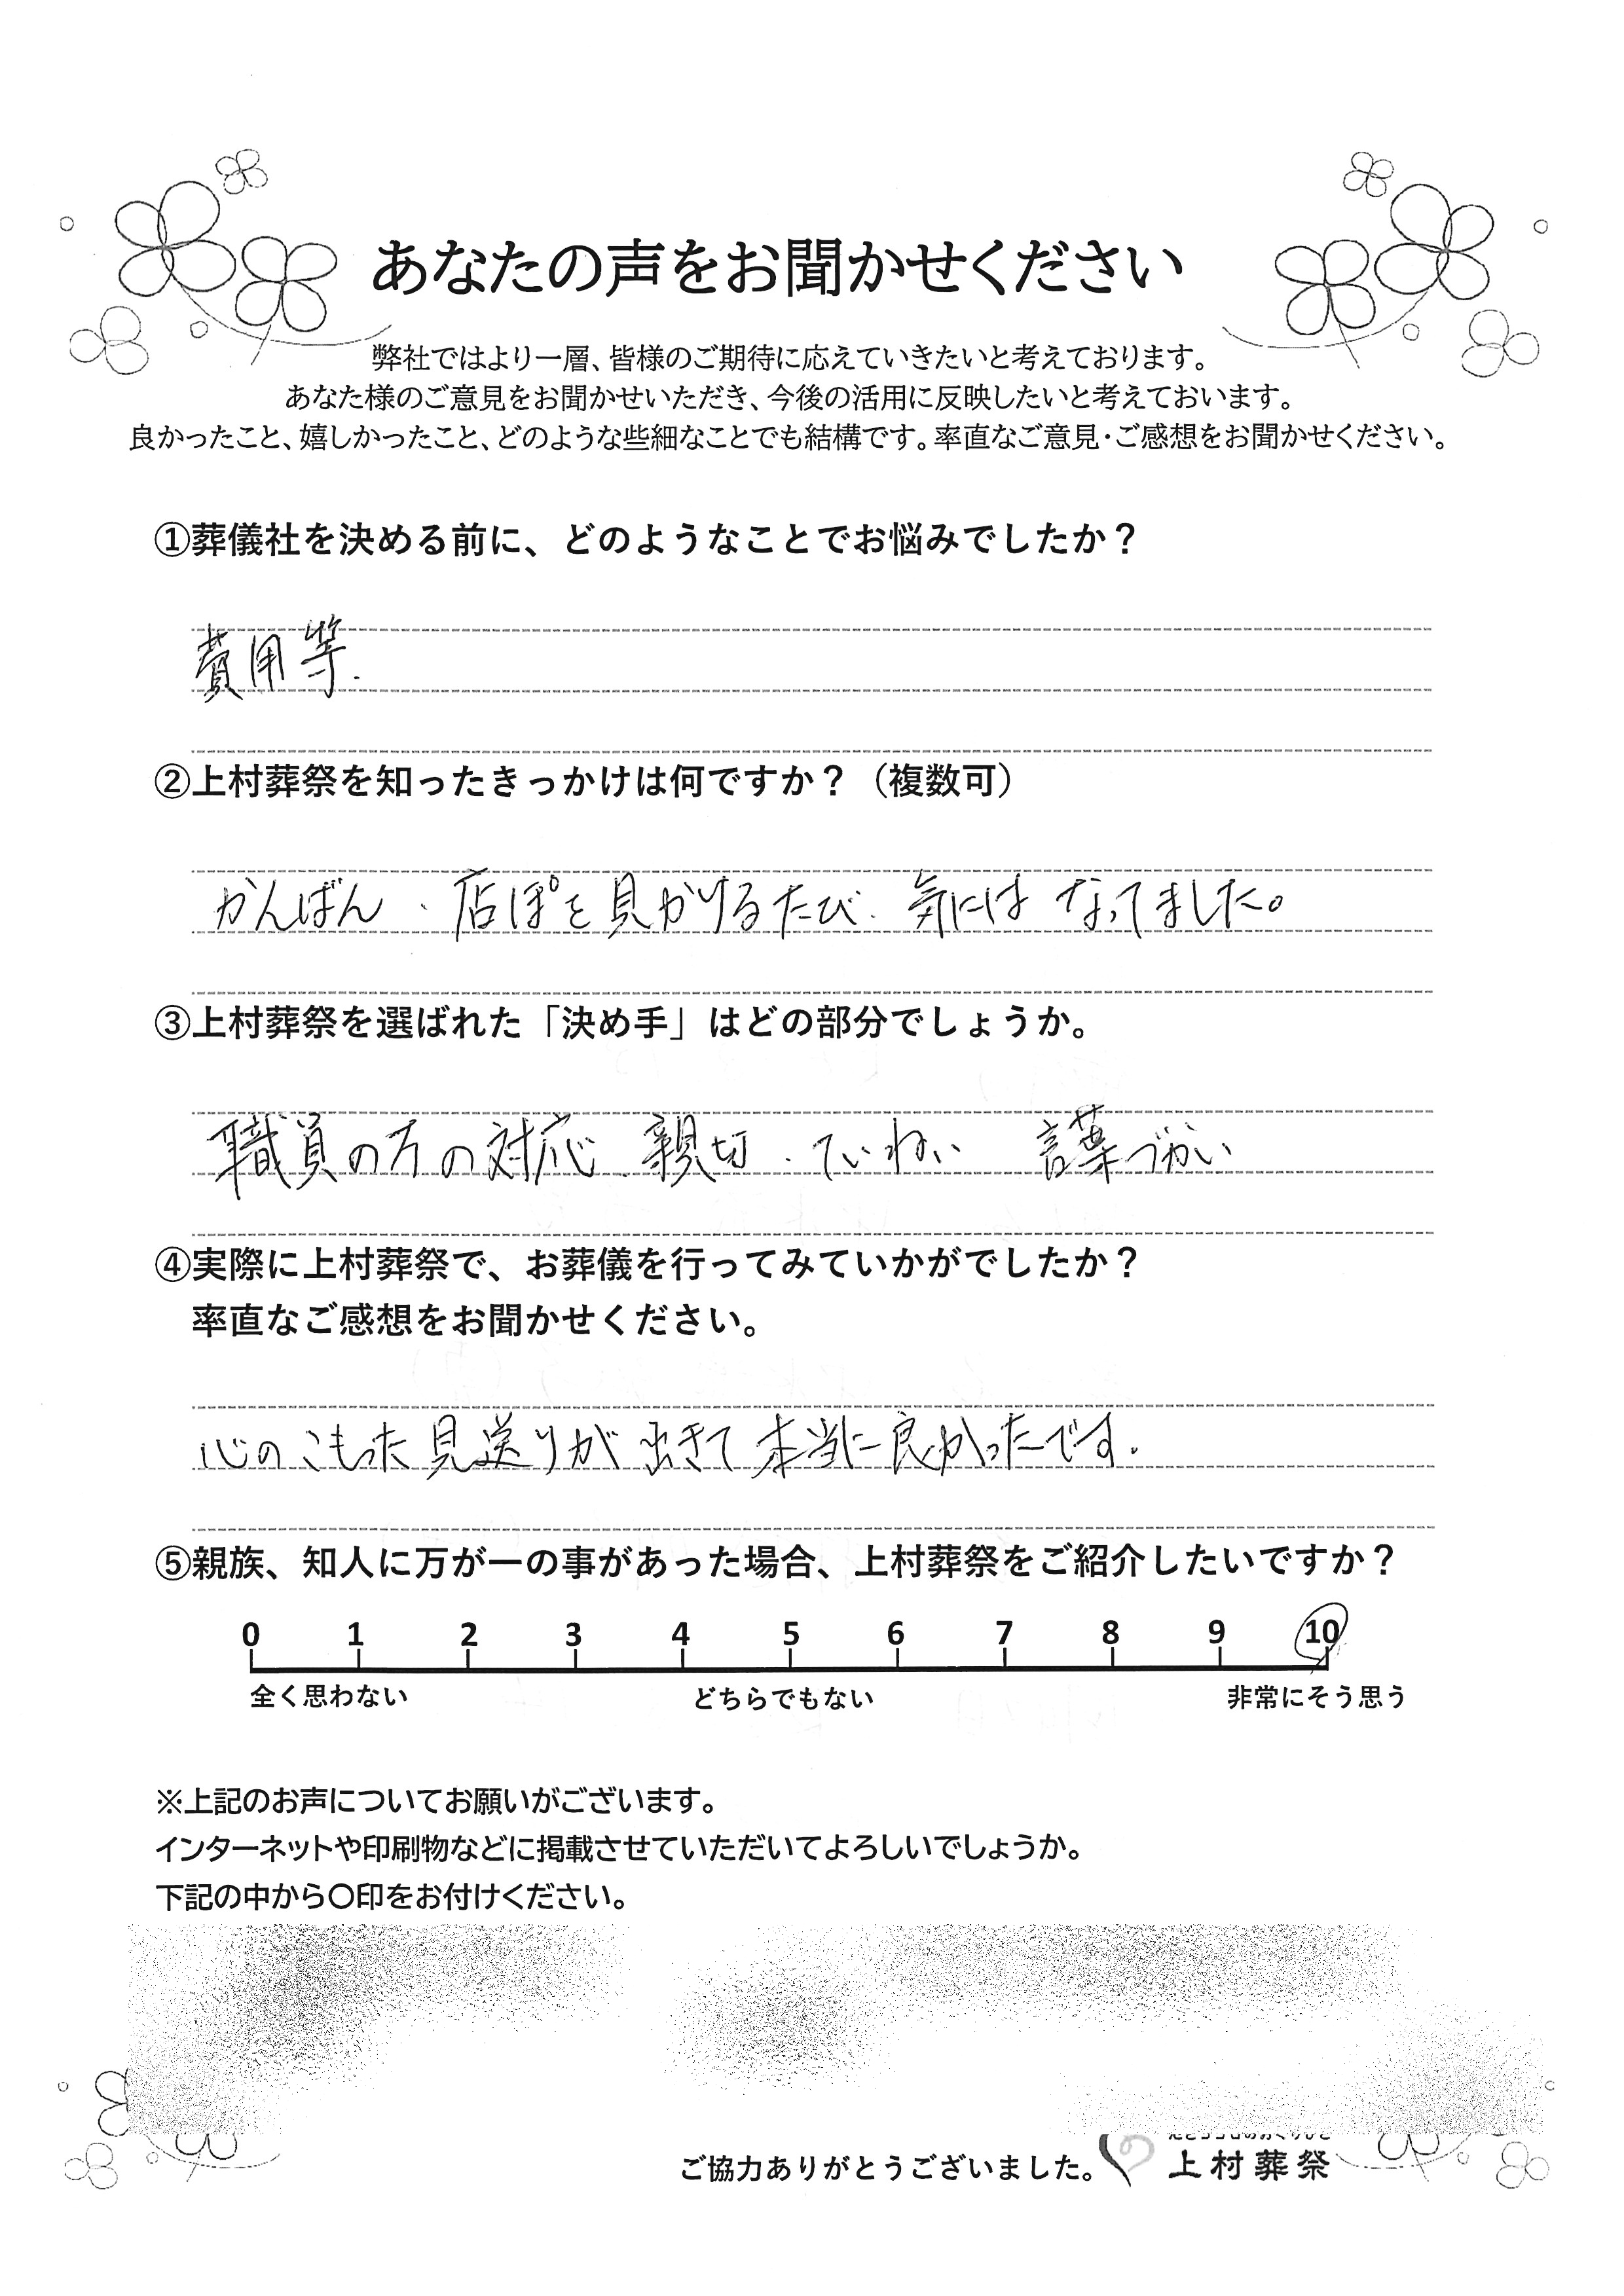 あなたの声をお聞かせください
弊社ではより一層、皆様のご期待に応えていきたいと考えております。
あなた様のご意見をお聞かせいただき、今後の活用に反映したいと考えておいます。
良かったこと、嬉しかったこと、どのような些細なことでも結構です。率直なご意見・ご感想をお聞かせください。
①葬儀社を決める前に、どのようなことでお悩みでしたか？
費用等.
②上村葬祭を知ったきっかけは何ですか？（複数可）
かんばん、店ぽを見かけるたび、気にはなってました。
③上村葬祭を選ばれた「決め手」はどの部分でしょうか。
職員の方の対応、親切、ていねい 言葉づかい
④実際に上村葬祭で、お葬儀を行ってみていかがでしたか？
率直なご感想をお聞かせください。
心のこもった見送りが出きて本当に良かったです.
⑤親族、知人に万が一の事があった場合、上村葬祭をご紹介したいですか？
0 1 2 3 4 5 6 7 8 9 10
全く思わない どちらでもない 非常にそう思う
※上記のお声についてお願いがございます。
インターネットや印刷物などに掲載させていただいてよろしいでしょうか。
下記の中から〇印をお付けください。
ご協力ありがとうございました。 上村葬祭